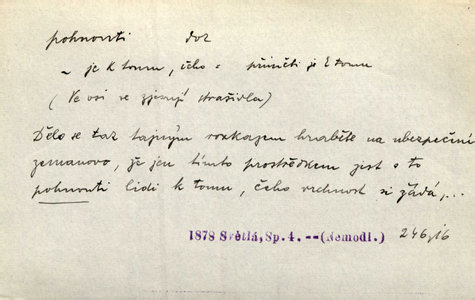 pohnouti dok
~ je k tomu, čeho = přiměti je k tomu
(Ve vsi se zjevují strašidla)
Dělo se tak tajným rozkazem hraběte na ubezpečení
zemanovo, že jen tímto prostředkem jest s to
pohnouti lidi k tomu, čeho vrchnost si žádá,...
1878 Světlá, Sp. 4. -- (Nemodl.) 246/16